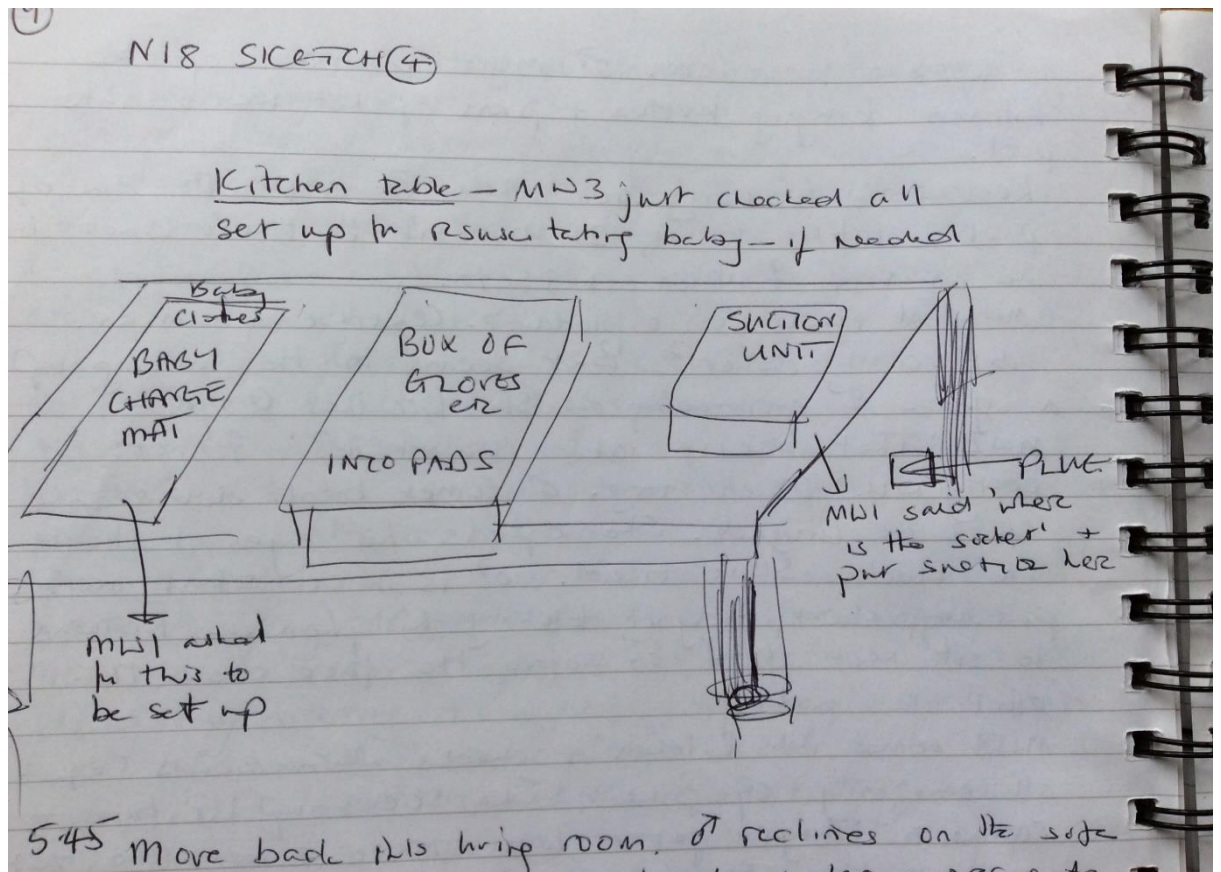 N18 SKETCH 4
Kitchen table – MW3 just checked all
set up for resuscitating baby – if needed
Baby
Clothes
BABY
CHANGE
MAT
BOX OF
GLOVES
etc
INCO PADS
SUCTION
UNIT
PLUG
MW1 said 'where
is the socket' +
put suction here
MW1 asked
for this to
be set up
5.45 Move back into living room. ♂ reclines on the sofa